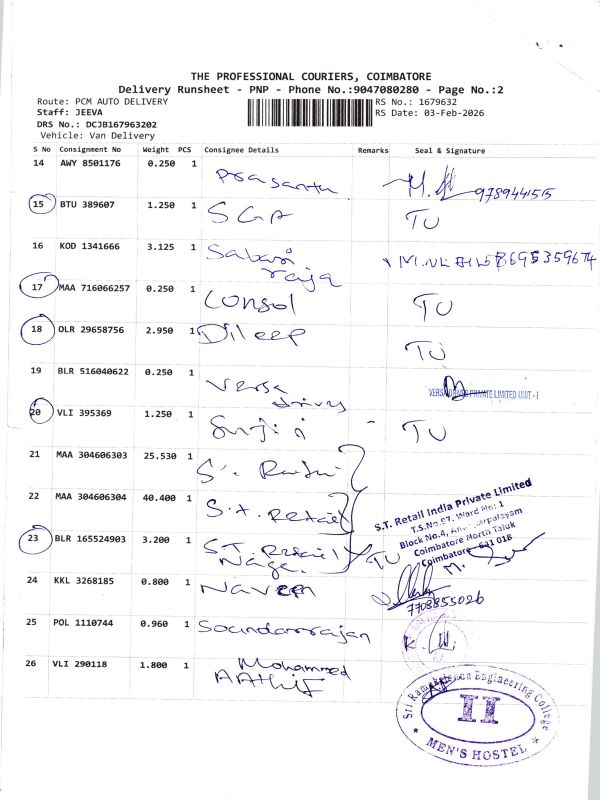 THE PROFESSIONAL COURIERS, COIMBATORE
Delivery Runsheet - PNP - Phone No.:9047080280 - Page No.:2
Route: PCM AUTO DELIVERY
Staff: JEEVA
DRS No.: DCJB167963202
Vehicle: Van Delivery
RS No.: 1679632
RS Date: 03-Feb-2026
S No Consignment No Weight PCS Consignee Details Remarks Seal & Signature
14 AWY 8501176 0.250 1 Prasanth
15 BTU 389607 1.250 1 SGA TU
16 KOD 1341666 3.125 1 Sabari raja
17 MAA 716066257 0.250 1 Consol TU
18 OLR 29658756 2.950 1 Dileep TU
19 BLR 516040622 0.250 1 Versa drives VERSA DRIVES PRIVATE LIMITED UNIT - I
20 VLI 395369 1.250 1 - TU
21 MAA 304606303 25.530 1
22 MAA 304606304 40.400 1 S.T. Retail
S.T. Retail India Private Limited
T.S.No.97, Ward No: 1
Block No.4,
Coimbatore North Taluk
Coimbatore - 641 018
23 BLR 165524903 3.200 1 S.T. Retail TU
24 KKL 3268185 0.800 1 Naveen 7708855026
25 POL 1110744 0.960 1 Soundarrajan
26 VLI 290118 1.800 1 Mohammed AAthif
Sri Ramakrishna Engineering College
II
* MEN'S HOSTEL *